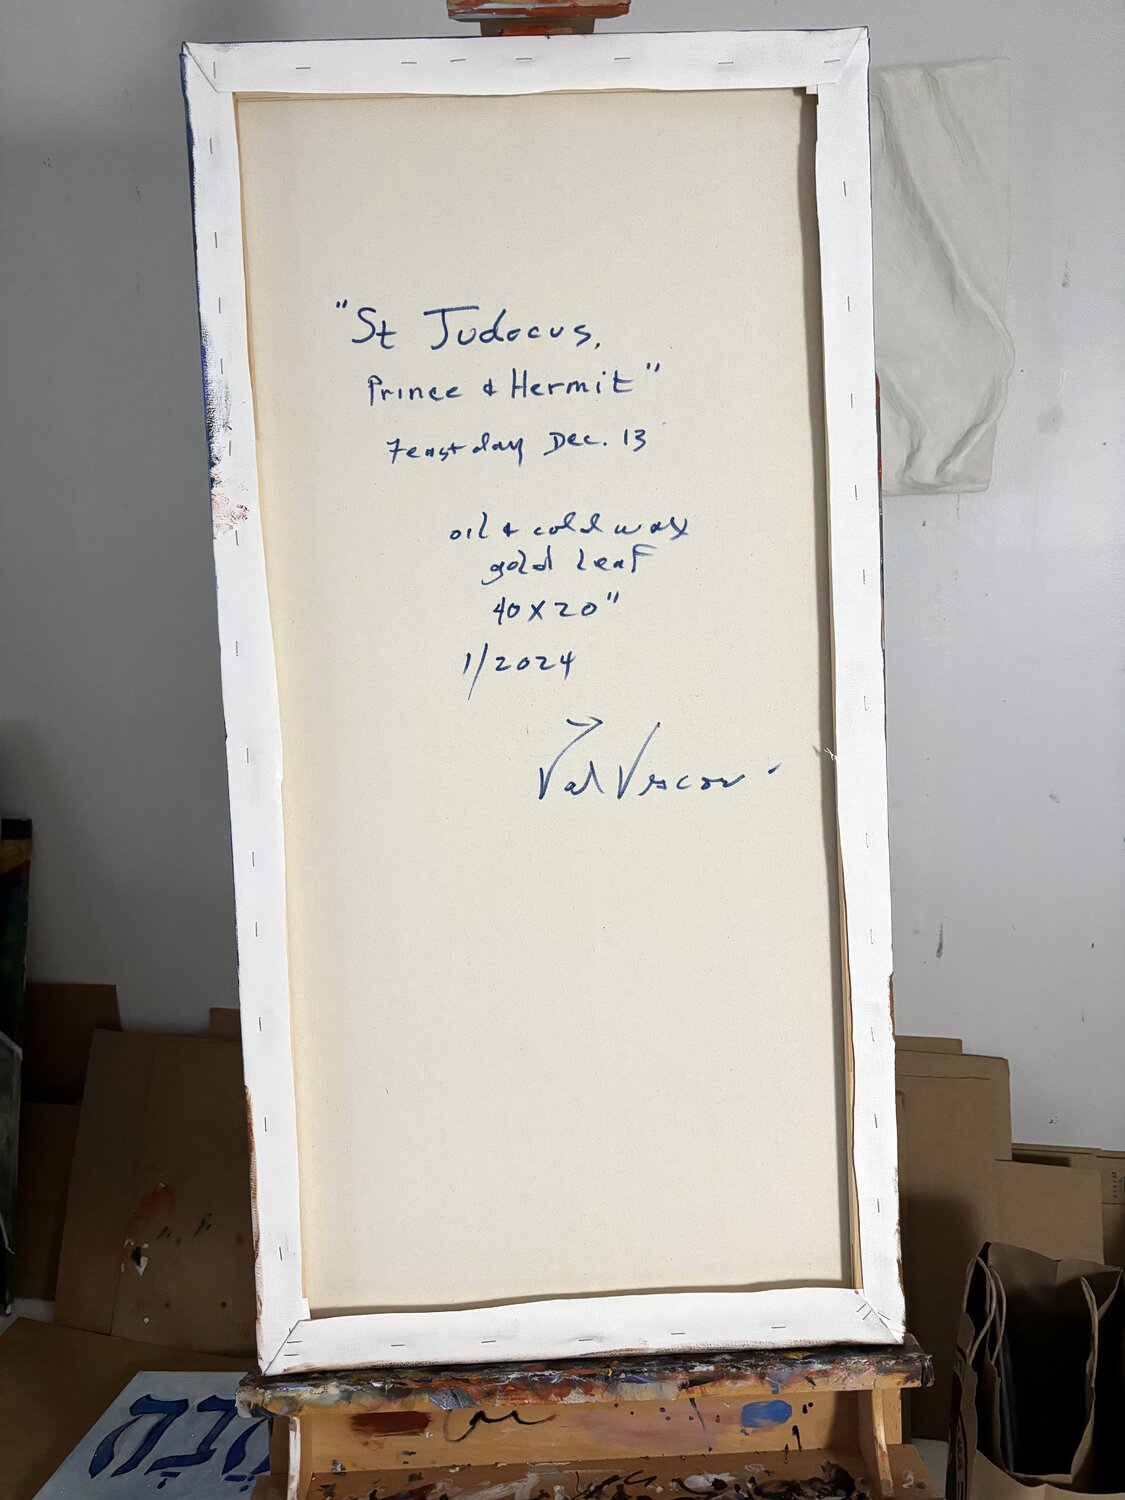 "St Judocus,
Prince & Hermit"
Feastday Dec. 13
oil & cold wax
gold leaf
40x20"
1/2024
Val